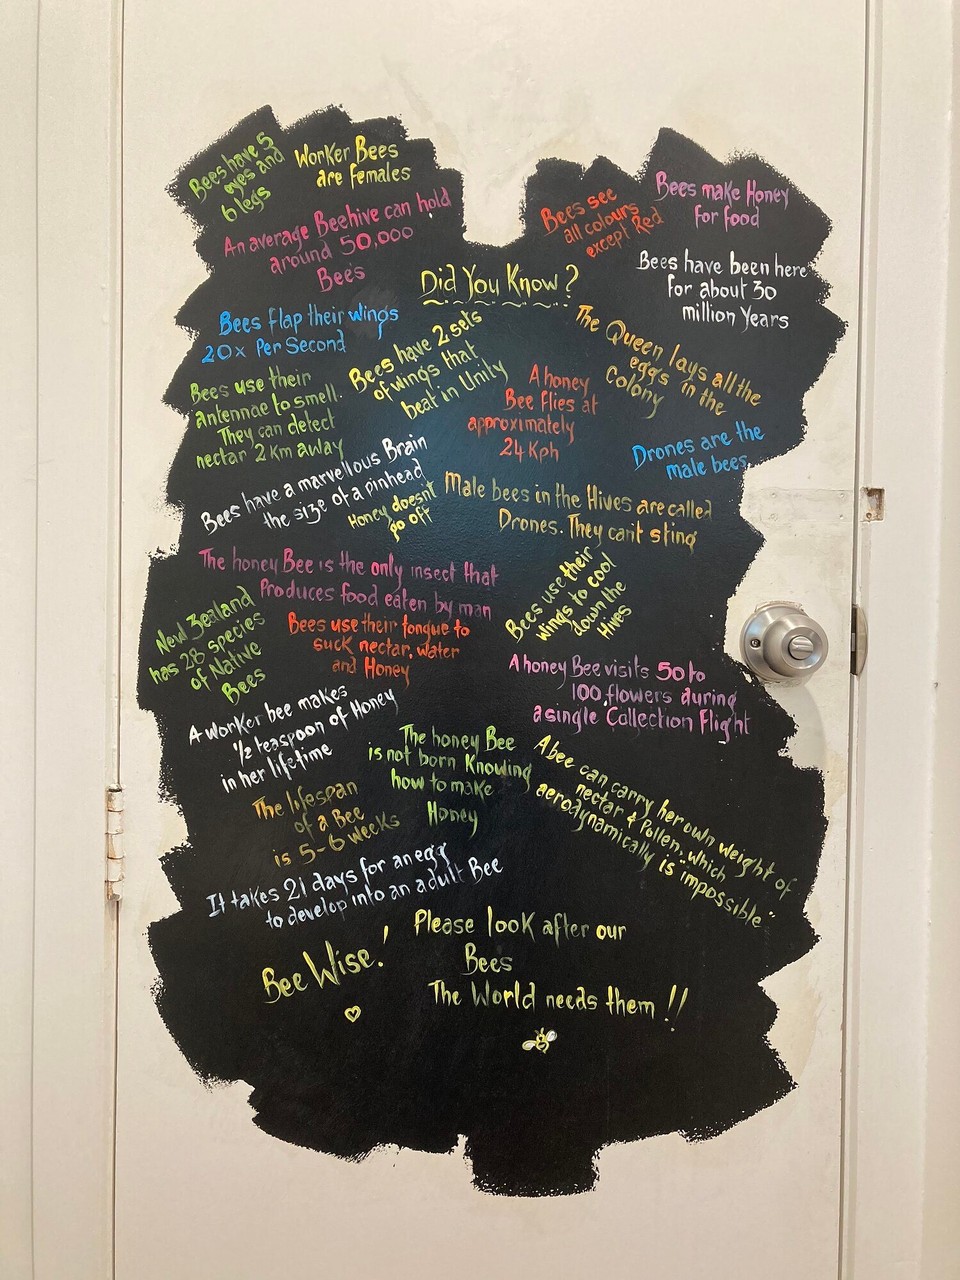 Bees have 5
eyes and
6 legs
Worker Bees
are females
An average Beehive can hold
around 50,000
Bees
Bees see
all colours
except Red
Bees make Honey
for food
Did You Know?
Bees have been here
for about 30
million Years
Bees flap their wings
20x Per Second
Bees have 2 sets
of wings that
beat in Unity
The Queen lays all the
eggs in the
Colony
Bees use their
antennae to smell.
They can detect
nectar 2 Km away
A honey
Bee flies at
approximately
24 Kph
Drones are the
male bees
Bees have a marvellous Brain
the size of a pinhead
Honey doesn't
go off
Male bees in the Hives are called
Drones. They can't sting
The honey Bee is the only insect that
Produces food eaten by man
Bees use their
wings to cool
down the
Hives
New Zealand
has 28 species
of Native
Bees
Bees use their tongue to
suck nectar, water
and Honey
A honey Bee visits 50 to
100 flowers during
a single Collection Flight
A worker bee makes
1/2 teaspoon of Honey
in her lifetime
The honey Bee
is not born Knowing
how to make
Honey
A bee can carry her own weight of
nectar & Pollen, which
aerodynamically is "impossible"
The lifespan
of a Bee
is 5-6 weeks
It takes 21 days for an egg
to develop into an adult Bee
Bee Wise!
Please look after our
Bees
The World needs them!!